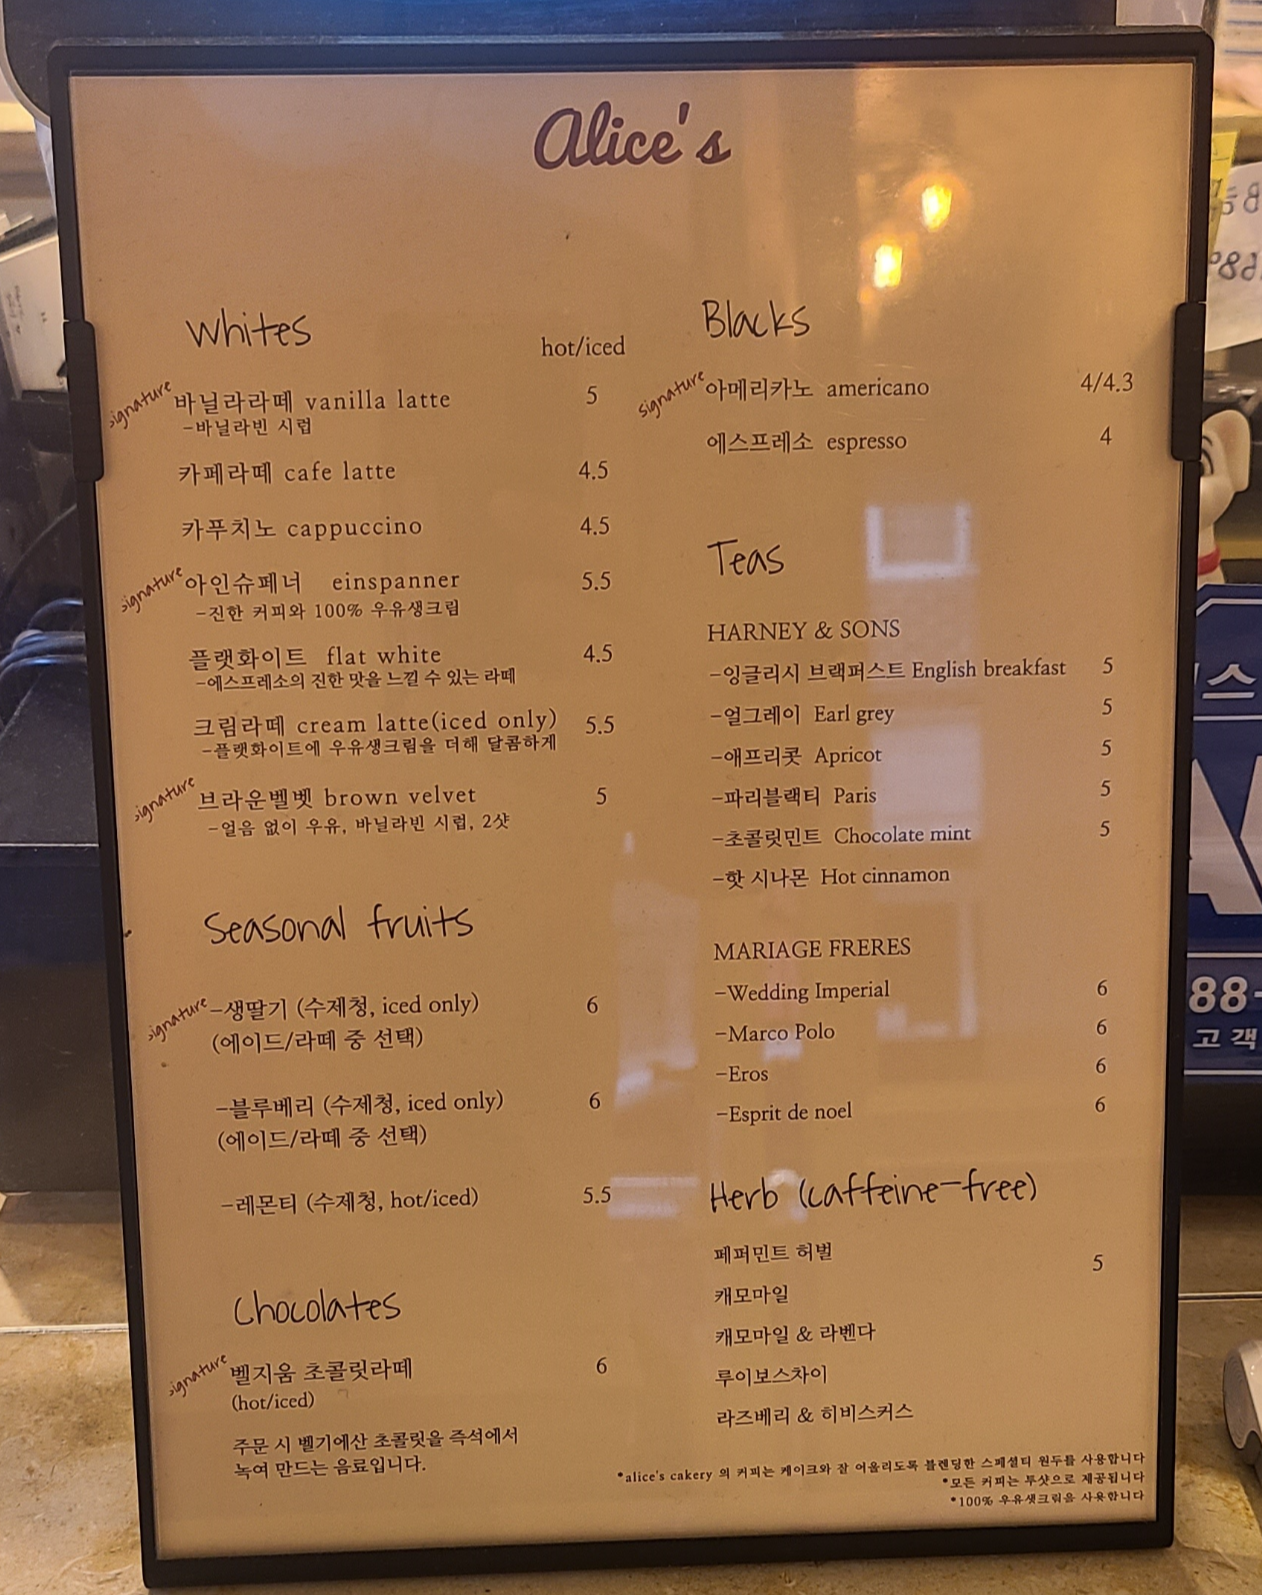 Alice's
Whites
hot/iced
signature 바닐라라떼 vanilla latte 5
-바닐라빈 시럽
카페라떼 cafe latte 4.5
카푸치노 cappuccino 4.5
signature 아인슈페너 einspanner 5.5
-진한 커피와 100% 우유생크림
플랫화이트 flat white 4.5
-에스프레소의 진한 맛을 느낄 수 있는 라떼
크림라떼 cream latte(iced only) 5.5
-플랫화이트에 우유생크림을 더해 달콤하게
signature 브라운벨벳 brown velvet 5
-얼음 없이 우유, 바닐라빈 시럽, 2샷
Seasonal fruits
signature -생딸기 (수제청, iced only) 6
(에이드/라떼 중 선택)
-블루베리 (수제청, iced only) 6
(에이드/라떼 중 선택)
-레몬티 (수제청, hot/iced) 5.5
Chocolates
signature 벨지움 초콜릿라떼 6
(hot/iced)
주문 시 벨기에산 초콜릿을 즉석에서
녹여 만드는 음료입니다.
Blacks
signature 아메리카노 americano 4/4.3
에스프레소 espresso 4
Teas
HARNEY & SONS
-잉글리시 브랙퍼스트 English breakfast 5
-얼그레이 Earl grey 5
-애프리콧 Apricot 5
-파리블랙티 Paris 5
-초콜릿민트 Chocolate mint 5
-핫 시나몬 Hot cinnamon
MARIAGE FRERES
-Wedding Imperial 6
-Marco Polo 6
-Eros 6
-Esprit de noel 6
Herb (caffeine-free)
페퍼민트 허벌 5
캐모마일
캐모마일 & 라벤다
루이보스차이
라즈베리 & 히비스커스
*alice's cakery 의 커피는 케이크와 잘 어울리도록 블렌딩한 스페셜티 원두를 사용합니다
*모든 커피는 투샷으로 제공됩니다
*100% 우유생크림을 사용합니다
스
88-
고객